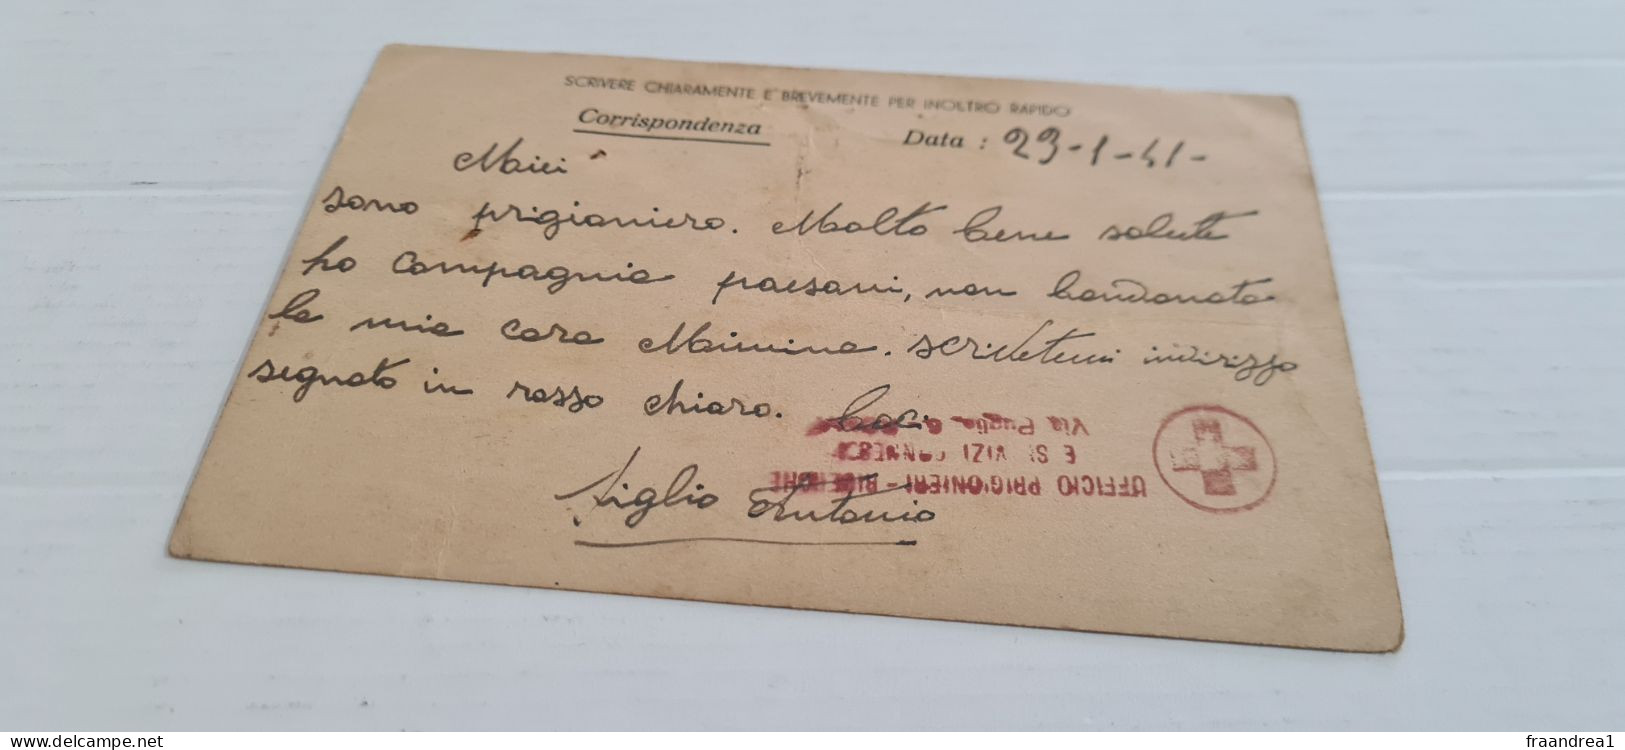 SCRIVERE CHIARAMENTE E' BREVEMENTE PER INOLTRO RAPIDO
Corrispondenza Data : 23-1-41-
Miei
sono prigioniero. Molto bene salute
ho compagnia paesani, non bandonate
la mia cara Mamina. scrivetemi indirizzo
segnato in rosso chiaro. Baci
figlio Antonio
UFFICIO PRIGIONIERI -
E SERVIZI CONNESSI
Via Puglie 6
www.delcampe.net
fraandrea1